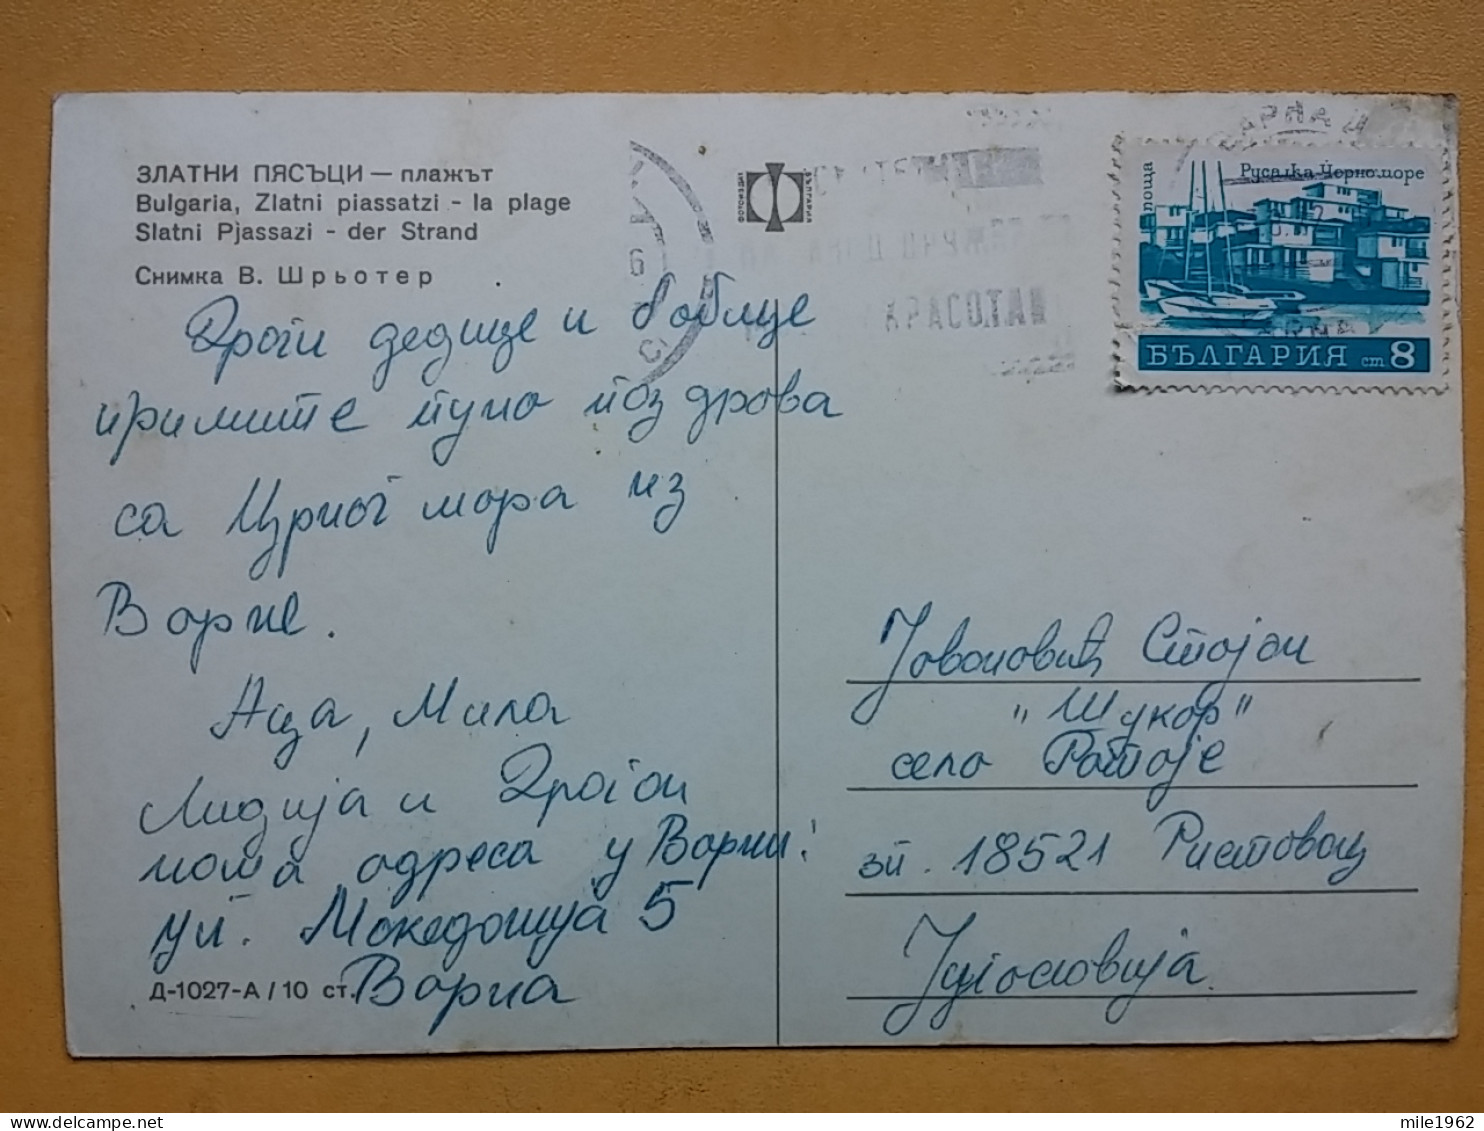 ЗЛАТНИ ПЯСЪЦИ — плажът
Bulgaria, Zlatni piassatzi - la plage
Slatni Pjassazi - der Strand
Снимка В. Шрьотер
ФОТОИЗДАТ
БЪЛГАРИЯ
КРАСОТА
ВАРНА
Русалка Черно море
БЪЛГАРИЯ ст 8
Драги дедице и баблице
примите пуно поздрава
са Црног мора из
Варне.
Аца, Мила
Лидија и Драган
нама адреса у Варни:
ул. Македонија 5
Варна
Д-1027-А / 10 ст.
Јовановић Стојан
"Шукар"
село Ратоје
зп. 18521 Ристовац
Југословија
mile1962